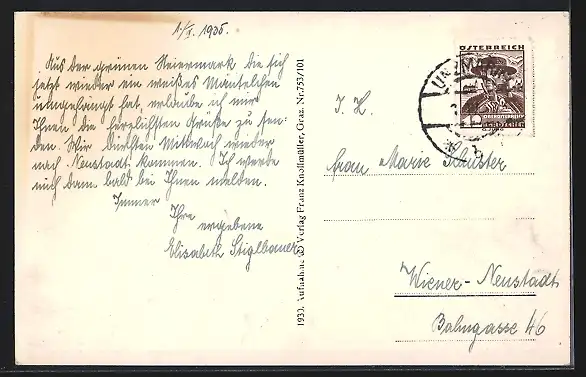 1./X. 1935.
Aus der grünen Steiermark die sich
jetzt wieder ein weißes Mäntelchen
umgehängt hat, erlaube ich mir
Ihnen die herzlichsten Grüße zu sen-
den. Wir dürften Mittwoch wieder
nach Neustadt kommen. Ich werde
mich dann bald bei Ihnen melden.
Immer
Ihre ergebene
Elisabeth Stiglbauer
1933. Aufnahme Verlag Franz Knollmüller, Graz. Nr. 753/101
ÖSTERREICH
12
OBERÖSTERREICH
GROSCHEN
UNZMARKT
Frau Marie Schuster
Wiener-Neustadt
Bahngasse 46